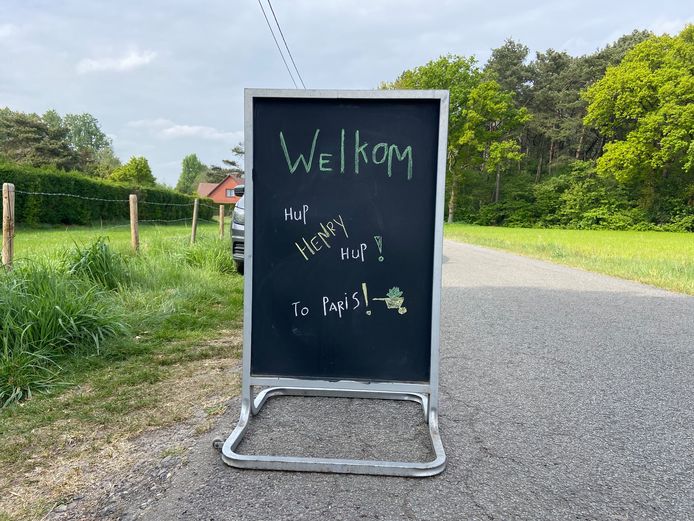 Welkom
HUP
HENRY
HUP!
To PARIS!